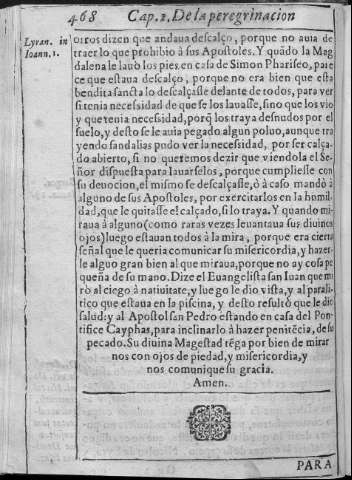 468 Cap. 2. De la peregrinacion
Lyran. in
Ioann. 1.
otros dizen que andaua descalço, porque no auia de
traer lo que prohibio à sus Apostoles. Y quãdo la Mag
dalena le lauò los pies en casa de Simon Phariseo, pare
ce que estaua descalço, porque no era bien que esta
bendita sancta lo descalçasse delante de todos, para ver
si tenia necessidad de que se los lauasse, sino que los vio
y que tenia necessidad, porq̃ los traya desnudos por el
suelo, y desto se le auia pegado algun poluo, aunque tra
yendo sandalias pudo ver la necessidad, por ser calça-
do abierto, si no queremos dezir que viendola el Se-
ñor dispuesta para lauarselos, porque cumpliesse con
su deuocion, el mismo se descalçasse, ò à caso mandò à
alguno de sus Apostoles, por exercitarlos en la humil-
dad, que le quitasse el calçado, si lo traya. Y quando mi-
raua à alguno (como raras vezes leuantaua sus diuinos
ojos) luego estauan todos à la mira, porque era cierta
señal que le queria comunicar su misericordia, y hazer-
le algun gran bien al que miraua, porque no ay cosa pe
queña de su mano. Dize el Euangelista san Iuan que mi
rò al ciego à natiuitate, y luego le dio vista, y al parali-
tico que estaua en la piscina, y desto resultò que le dio
salud: y al Apostol san Pedro estando en casa del Pon-
tifice Cayphas, para inclinarlo à hazer penitẽcia, de su
pecado. Su diuina Magestad tẽga por bien de mirar
nos con ojos de piedad, y misericordia, y
nos comunique su gracia.
Amen.
PARA